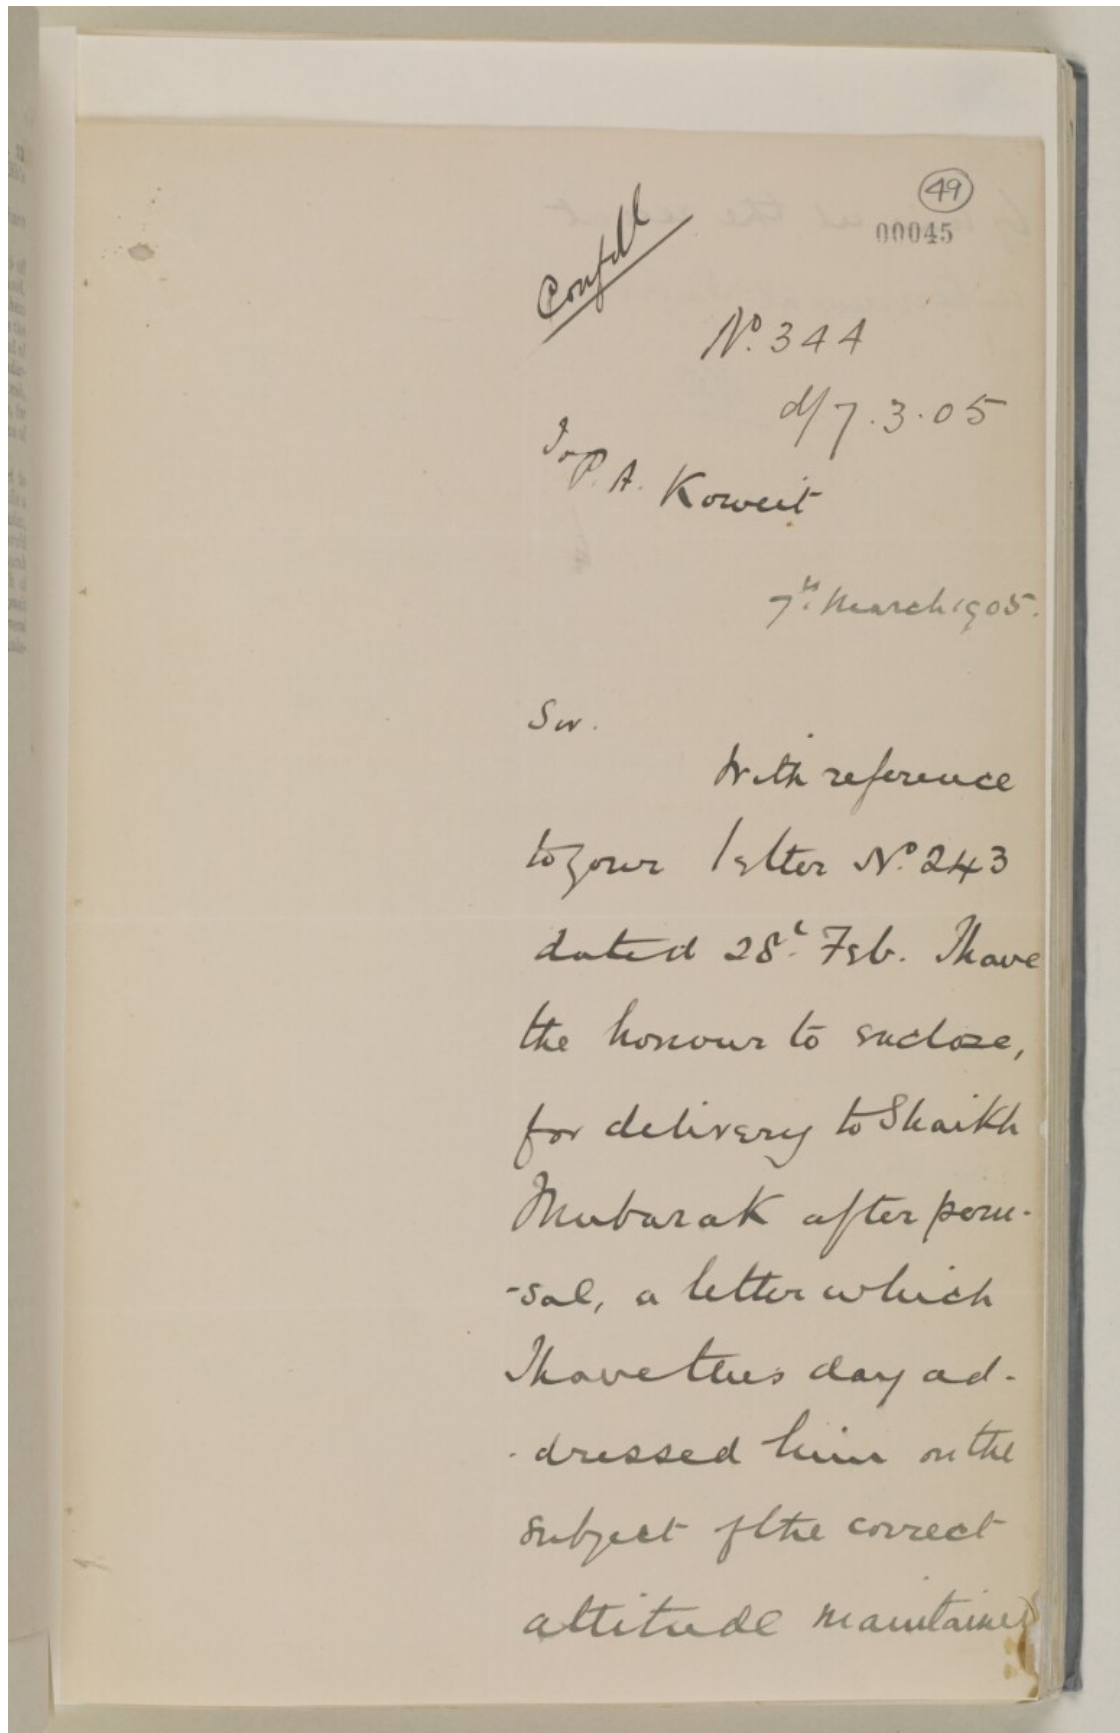 49
00045
Confdl
No. 344
d/7.3.05
To P. A. Koweit
7th March 1905.
Sir.
With reference
to your letter No. 243
dated 28th. Feb. I have
the honour to enclose,
for delivery to Shaikh
Mubarak after peru-
-sal, a letter which
I have this day ad-
-dressed him on the
subject of the correct
attitude maintained